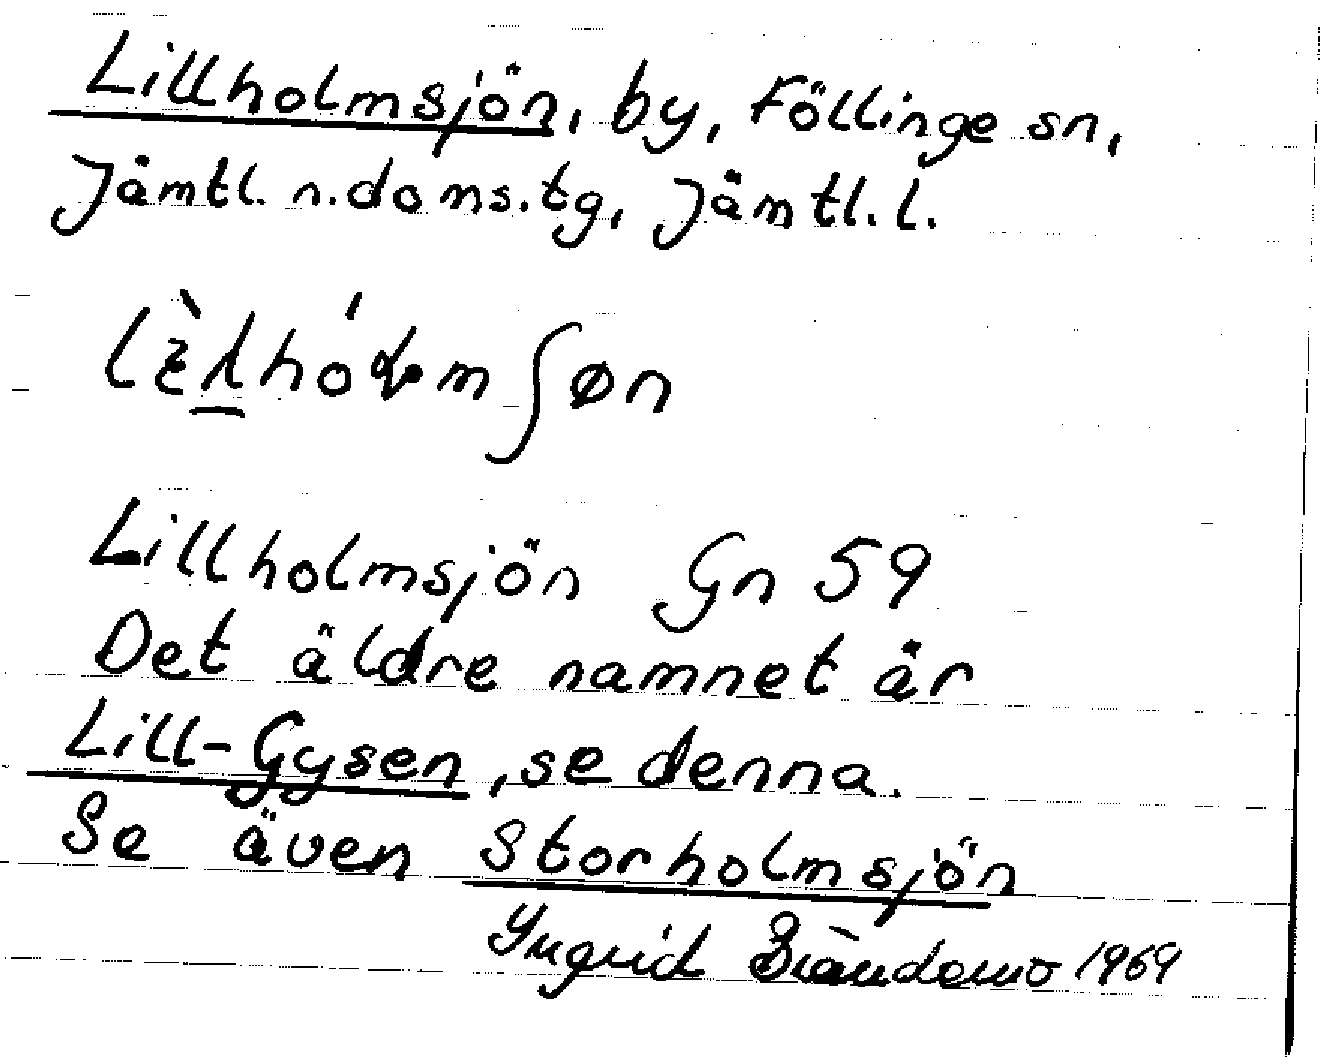 Lillholmsjön, by, Föllinge sn,
Jämtl. n. doms.tg, Jämtl. l.
Lillholmsjön Gn 59
Det äldre namnet är
Lill-Gysen, se denna.
Se även Storholmsjön
Yngrid 1969